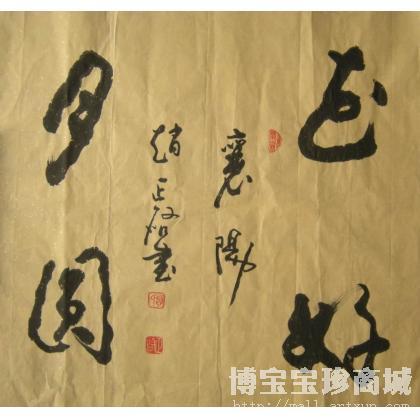 花好
月圆
襄阳
趙正啟書
博宝宝珍商城
http://mall.artxun.com